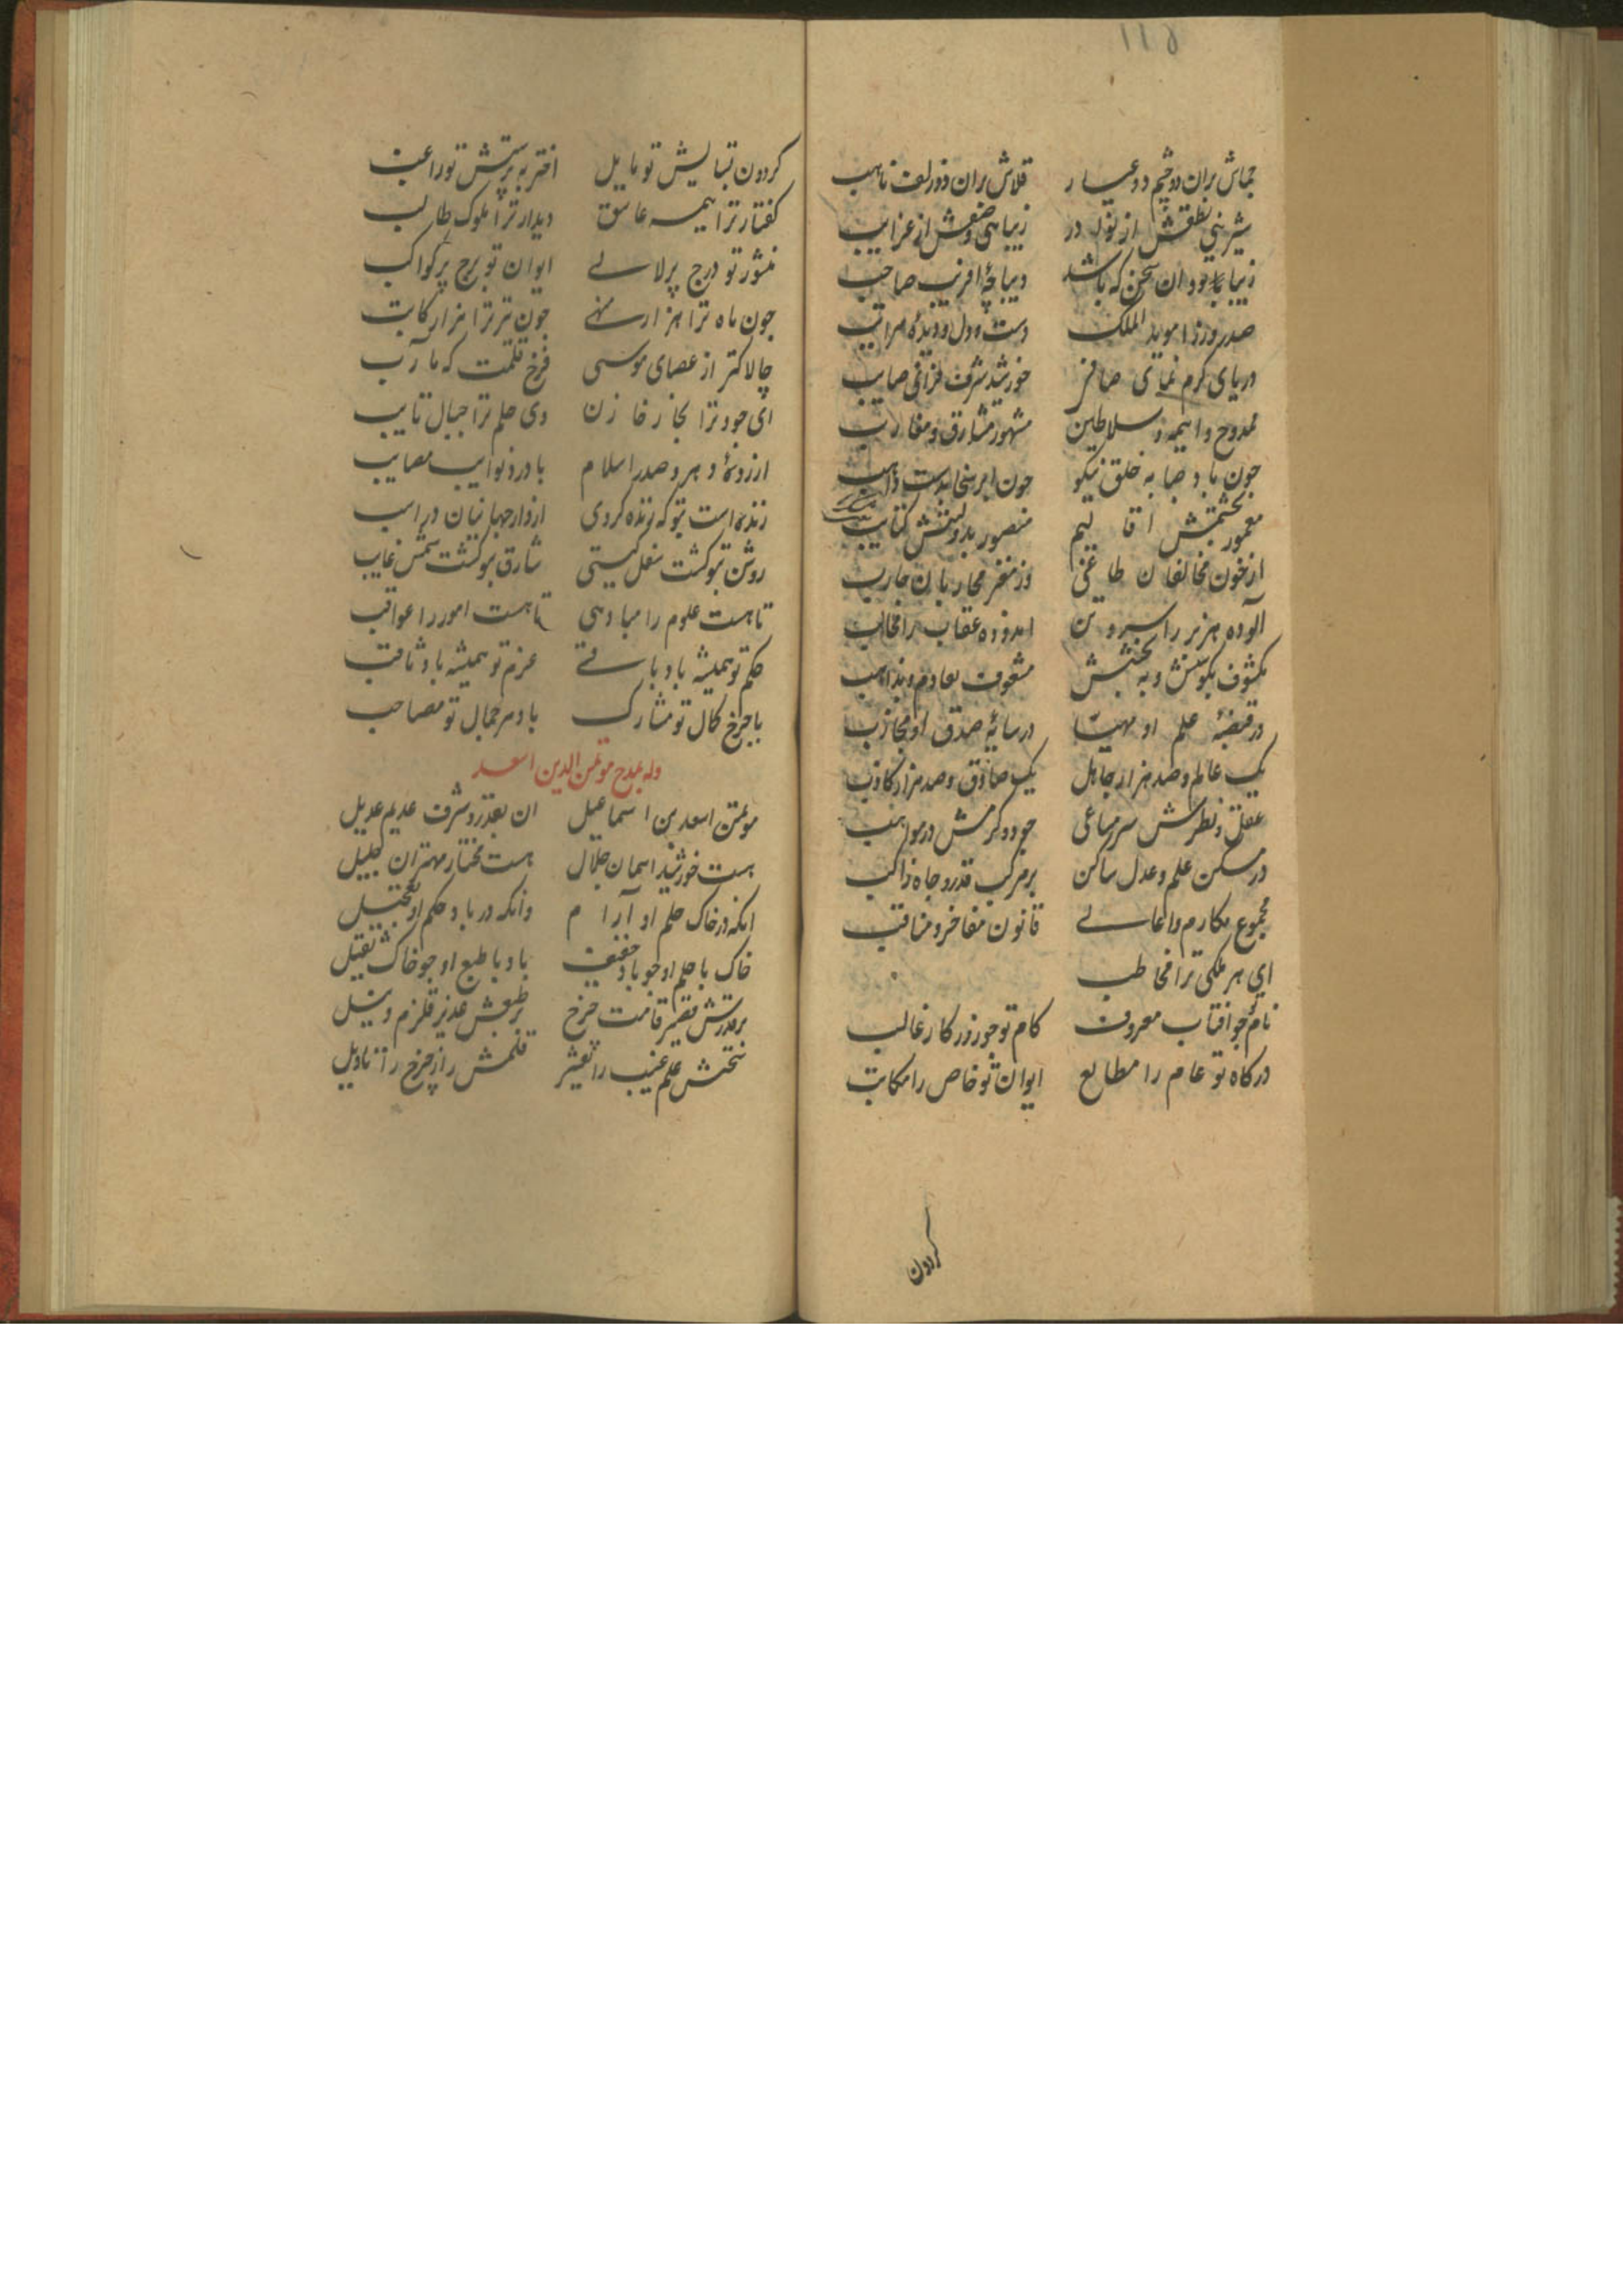 جماش بران دو چشم دو عیار قلاش بران دو زلف ناهب
شیرینی نطقش از نوادر زیبایی وصفش از غرایب
زیبا بود ان سخن که باشد دیباچهٔ افرین صاحب
صدر وزرا موید الملک دست و دل و دیدهٔ مراتب
دریای کرم خورشید شرف صایب
ممدوح واهمه سلاطین مشهور مشارق و مغارب
چون باد صبا به خلق نیکو چون ابر سخا بدست واهب
معمور بحشمتش اقالیم منصور بدولتش کتایب
از خون مخالفان طاغی وز مغز محاربان حارب
الوده هزبر را سر و تن اندوده عقاب را مخالب
مکشوف بکوشش و به بخشش
در قبضهٔ علم او مهیا در سایهٔ صدق او مجاذب
یک عالم و صد هزار جاهل یک صادق و صد هزار کاذب
عقل و نظرش سر مساعی جود و کرمش در مواهب
در مسکن علم و عدل ساکن بر مرکب قدر و جاه راکب
مجموع مکارم و اعالی قانون مفاخر و مناقب
ای هر ملکی ترا مخاطب
نام تو جو افتاب معروف کام تو جو روزکار غالب
درکاه تو عام را مطالع ایوان تو خاص را مکاتب
کردون
کردون بتبایش تو مایل اختر به پرستش تو راغب
کفتار ترا همه عاشق دیدار ترا ملوک طالب
منشور تو درج پر لالی ایوان تو برج پر کواکب
جون ماه ترا هزار منهی جون تیر ترا هزار کاتب
چالاکتر از عصای موسی فرخ قلمت که مآرب
ای جود ترا بحار خازن وی حلم ترا جبال نایب
ارزونهٔ دهر و صدر اسلام با درد نوایب مصایب
زنده است بتو که زنده کردی ادوار جهانیان
روشن بتو کشت شغل کیتی شارق بتو کشت شمس غایب
تا هست علوم را مبادی تا هست امور را عواقب
حکم تو همیشه باد باقی عزم تو همیشه باد ثاقب
با جرخ کمال تو مشارک با دهر جمال تو مصاحب
وله بمدح موتمن الدین اسعد
موتمن اسعد بن اسماعیل ان بقدر و شرف عدیم عدیل
هست خورشید اسمان جلال هست مختار مهتران جلیل
انکه در خاک حلم او آرام وانکه در باد حکم او تعجیل
خاک با حلم او جو باد خفیف باد با طبع او جو خاک ثقیل
بر قدرتش قصیر قامت جرخ بر طبعش غدیر قلزم و نیل
سخنش علم غیب را تفسیر قلمش راز جرخ را تاویل